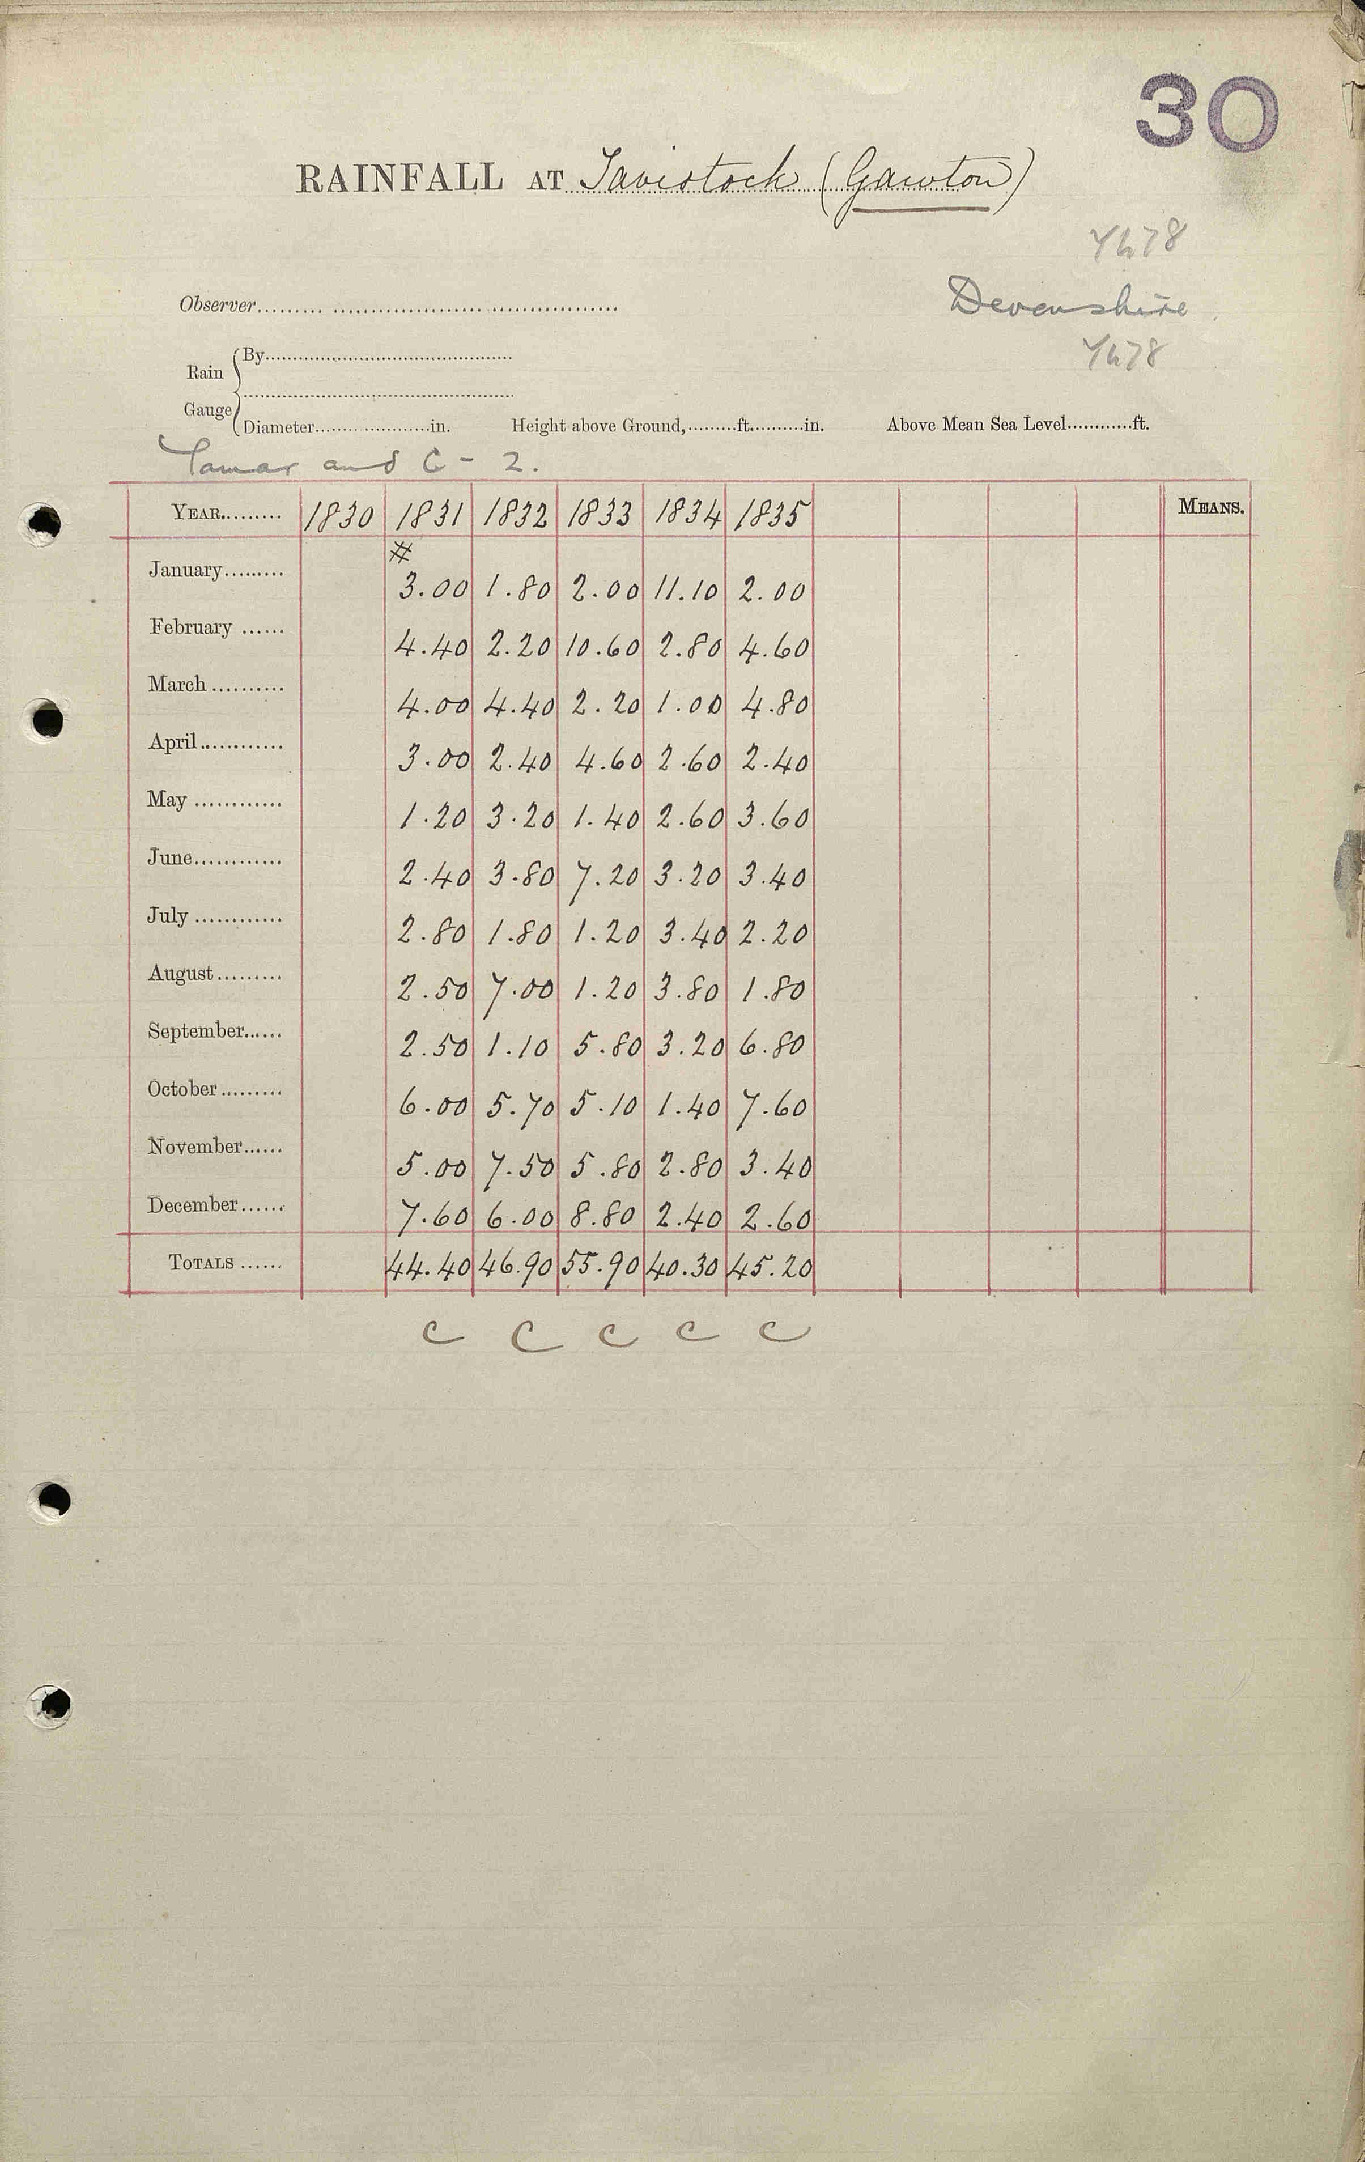 30
RAINFALL AT Tavistock (Gawton)
Observer
Devonshire
Rain Gauge
By
Diameter in. Height above Ground, ft. in. Above Mean Sea Level ft.
Tamar and C - 2.
YEAR 1830 1831 1832 1833 1834 1835 MEANS.
#
January 3.00 1.80 2.00 11.10 2.00
February 4.40 2.20 10.60 2.80 4.60
March 4.00 4.40 2.20 1.00 4.80
April 3.00 2.40 4.60 2.60 2.40
May 1.20 3.20 1.40 2.60 3.60
June 2.40 3.80 7.20 3.20 3.40
July 2.80 1.80 1.20 3.40 2.20
August 2.50 7.00 1.20 3.80 1.80
September 2.50 1.10 5.80 3.20 6.80
October 6.00 5.70 5.10 1.40 7.60
November 5.00 7.50 5.80 2.80 3.40
December 7.60 6.00 8.80 2.40 2.60
TOTALS 44.40 46.90 55.90 40.30 45.20
C C C C C